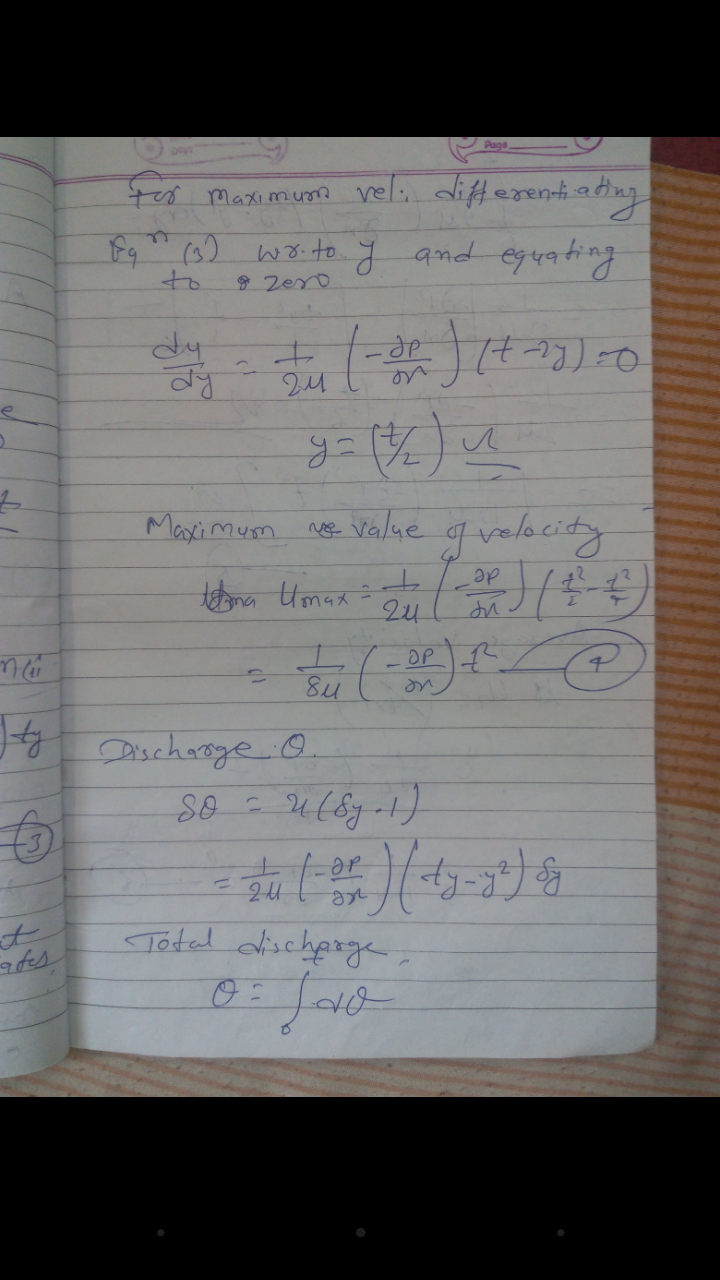 Page
For maximum vel. differentiating
Eqⁿ (3) w.r.to y and equating
to zero
du/dy = 1/2μ (-∂P/∂x) (t - 2y) = 0
y = (t/2)
Maximum value of velocity
Umax = 1/2μ (-∂P/∂x) (t²/2 - t²/4)
= 1/8μ (-∂P/∂x) t² — 4
Discharge Q.
δQ = u(δy.1)
= 1/2μ (-∂P/∂x) (ty - y²) δy
Total discharge.
Q = ∫₀ᵗ dQ
ty
3